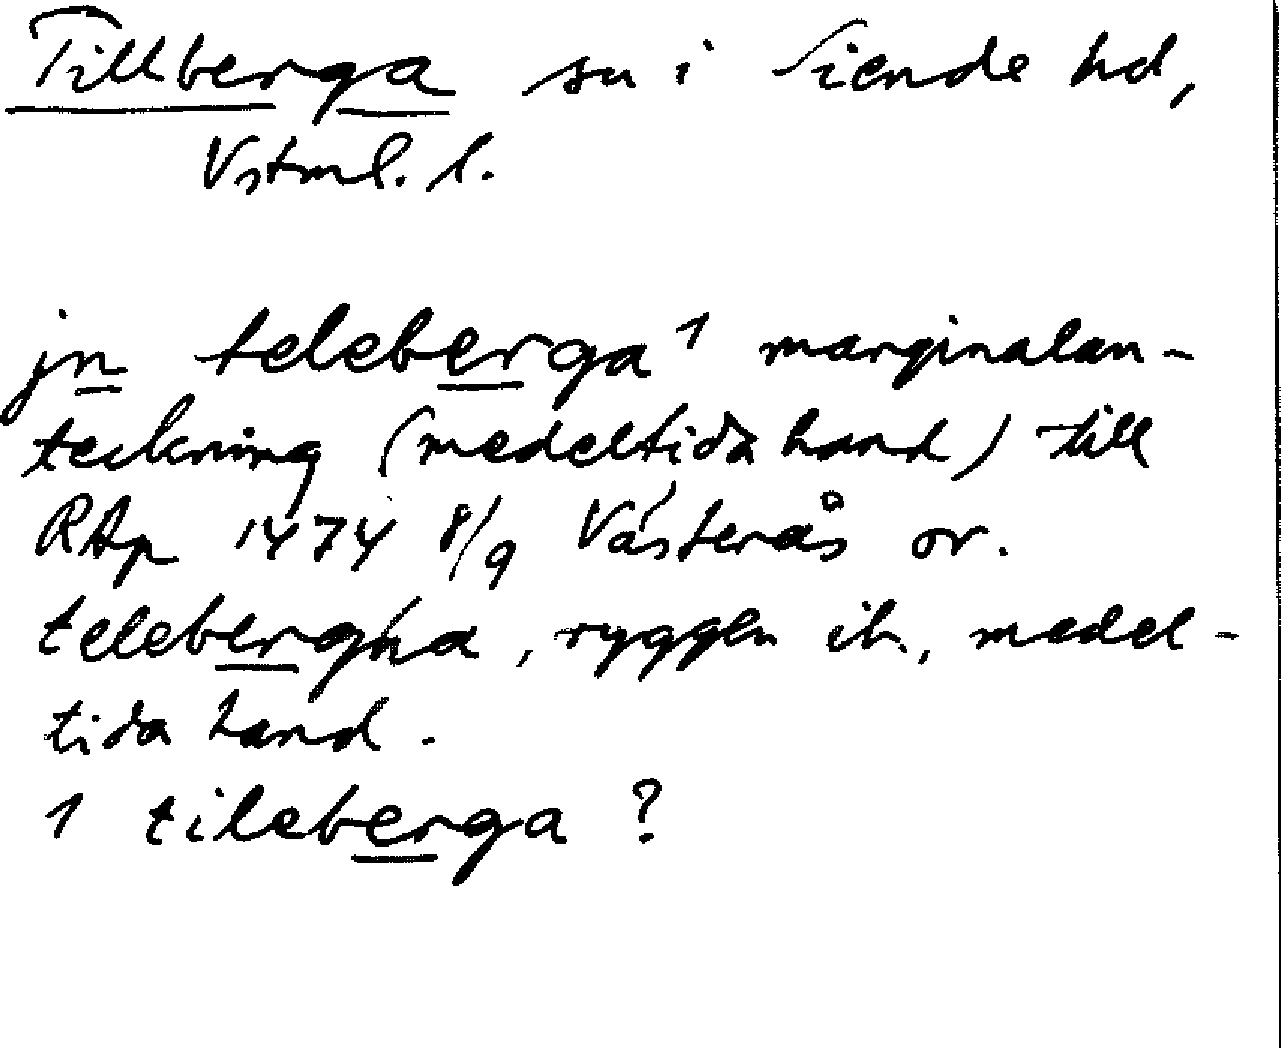 Tillberga sn i Siende hd,
Vstml. l.
jn teleberga 1 marginalan-
teckning (medeltida hand) till
RAp 1474 8/9 Västerås or.
telebergha, ryggen ib, medel-
tida hand.
1 tileberga ?